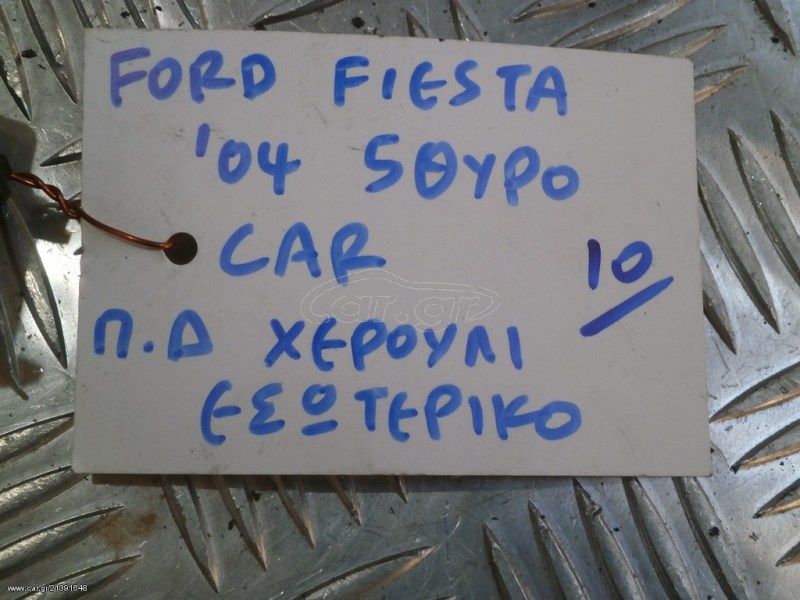 FORD FIESTA
'04 5ΘΥΡΟ
CAR
10
Π.Δ ΧΕΡΟΥΛΙ
ΕΣΩΤΕΡΙΚΟ
car.gr
www.car.gr/21391648